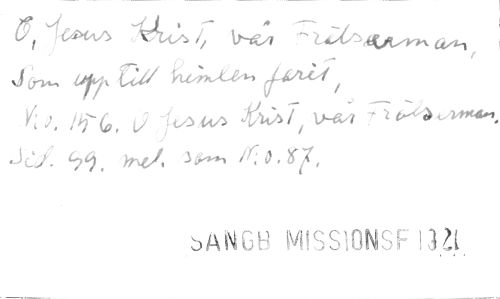 O, Jesus Krist, vår Frälserman,
Som upp till himlen farit,
N:o. 156. O Jesus Krist, vår Frälserman.
Sid. 99. mel. som N:o. 87.
SANGB MISSIONSF 1921